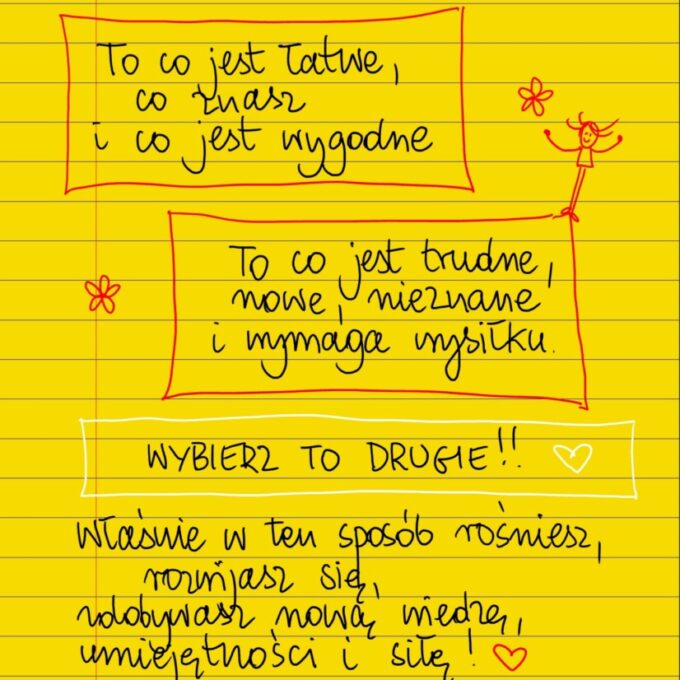 To co jest łatwe,
co znasz
i co jest wygodne
To co jest trudne,
nowe, nieznane
i wymaga wysiłku.
WYBIERZ TO DRUGIE!!
Właśnie w ten sposób rośniesz,
rozwijasz się,
zdobywasz nową wiedzę,
umiejętności i siłę!